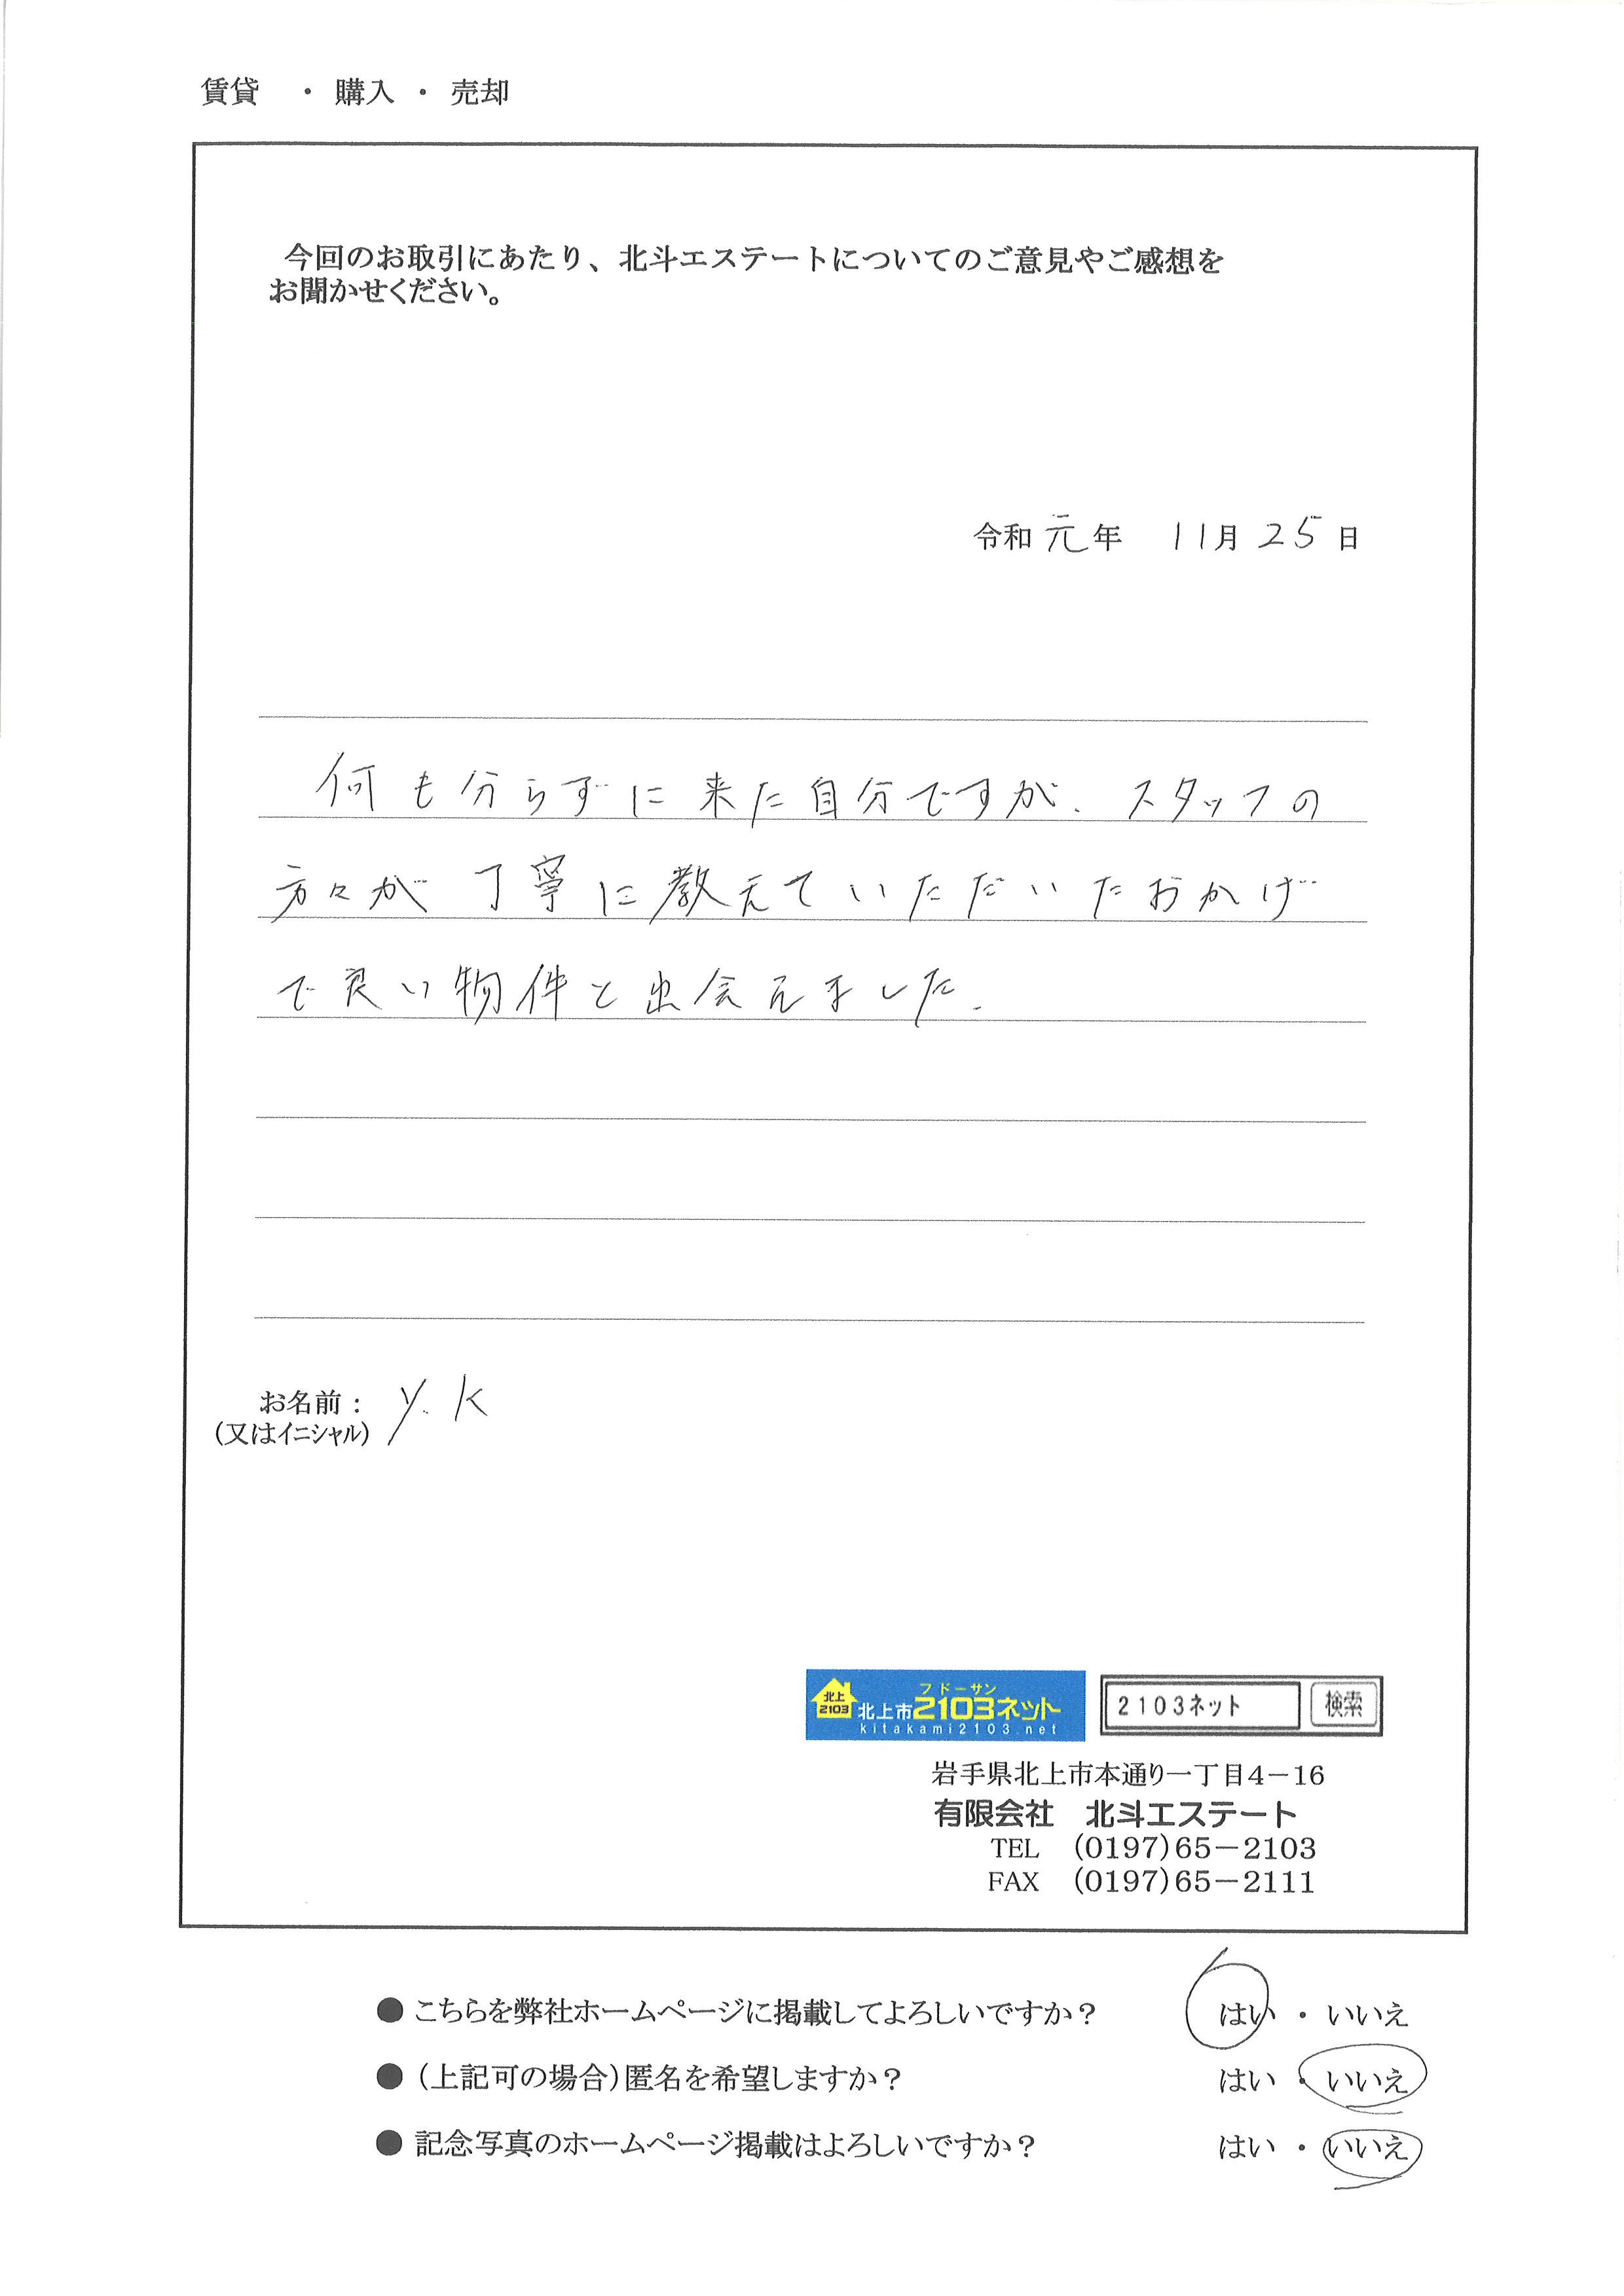 賃貸　・ 購入 ・ 売却
今回のお取引にあたり、北斗エステートについてのご意見やご感想を
お聞かせください。
令和 元 年　11月 25 日
何も分らずに来た自分ですが、スタッフの
方々が丁寧に教えていただいたおかげ
で良い物件と出会えました。
お名前： Y. K
（又はイニシャル）
フドーサン
北上 2103 北上市2103ネット
kitakami2103.net
2103ネット 検索
岩手県北上市本通り一丁目4－16
有限会社　北斗エステート
TEL　(0197)65－2103
FAX　(0197)65－2111
● こちらを弊社ホームページに掲載してよろしいですか？ はい ・ いいえ
● （上記可の場合）匿名を希望しますか？ はい ・ いいえ
● 記念写真のホームページ掲載はよろしいですか？ はい ・ いいえ